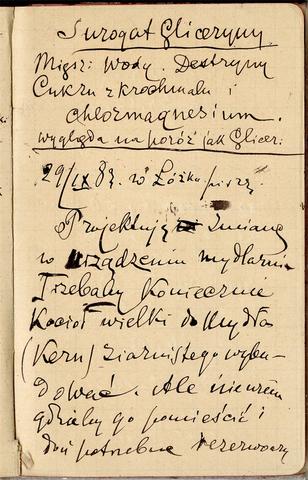 Surogat Gliceryny
Migsz: Wody. Destryny
Cukru z krochmalu i
chlormagnesium.
wygląda na pozór jak Glicer:
29/IX 83. w Łóżku piszę.
Projektuję Zmianę
w urządzeniu mydlarni
Trzebaby Koniecznie
Kocioł wielki do Mydła
(Kern) Ziarnistego wybu-
dować. Ale nie wiem
gdzieby go pomieścić i
doń potrzebne rezerwoary